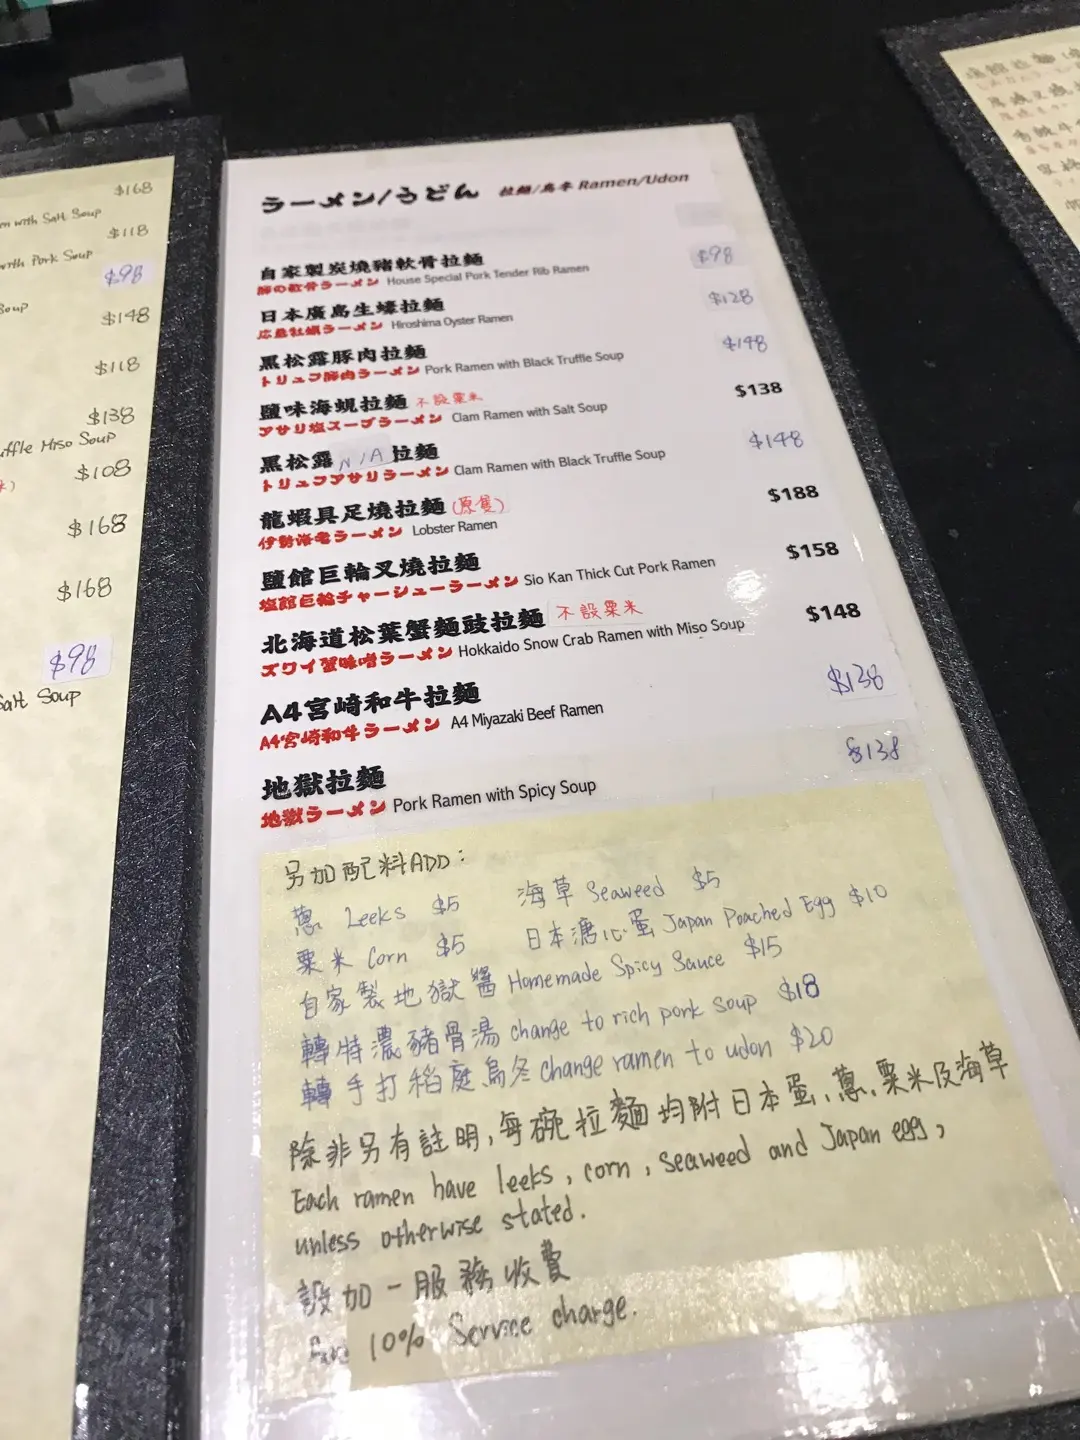 $168
with Salt Soup
$118
with Pork Soup
$98
Soup
$148
$118
$138
Miso Soup
$108
$168
$168
$98
Salt Soup
ラーメン/うどん 拉麵/烏冬 Ramen/Udon
自家製炭燒豬軟骨拉麵 $98
豚の軟骨ラーメン House Special Pork Tender Rib Ramen
日本廣島生蠔拉麵 $128
広島牡蠣ラーメン Hiroshima Oyster Ramen
黑松露豚肉拉麵 $148
トリュフ豚肉ラーメン Pork Ramen with Black Truffle Soup
鹽味海蜆拉麵 不設粟米 $138
アサリ塩スープラーメン Clam Ramen with Salt Soup
黑松露 N/A 拉麵 $148
トリュフアサリラーメン Clam Ramen with Black Truffle Soup
龍蝦具足燒拉麵 (原隻) $188
伊勢海老ラーメン Lobster Ramen
鹽館巨輪叉燒拉麵 $158
塩館巨輪チャーシューラーメン Sio Kan Thick Cut Pork Ramen
北海道松葉蟹麵豉拉麵 不設粟米 $148
ズワイ蟹味噌ラーメン Hokkaido Snow Crab Ramen with Miso Soup
A4宮崎和牛拉麵 $138
A4宮崎和牛ラーメン A4 Miyazaki Beef Ramen
地獄拉麵 $138
地獄ラーメン Pork Ramen with Spicy Soup
另加配料ADD:
蔥 Leeks $5 海草 Seaweed $5
粟米 Corn $5 日本溏心蛋 Japan Poached Egg $10
自家製地獄醬 Homemade Spicy Sauce $15
轉特濃豬骨湯 change to rich pork soup $18
轉手打稻庭烏冬 change ramen to udon $20
除非另有註明,每碗拉麵均附日本蛋、蔥、粟米及海草
Each ramen have leeks, corn, seaweed and Japan egg,
unless otherwise stated.
設加一服務收費
10% Service charge.